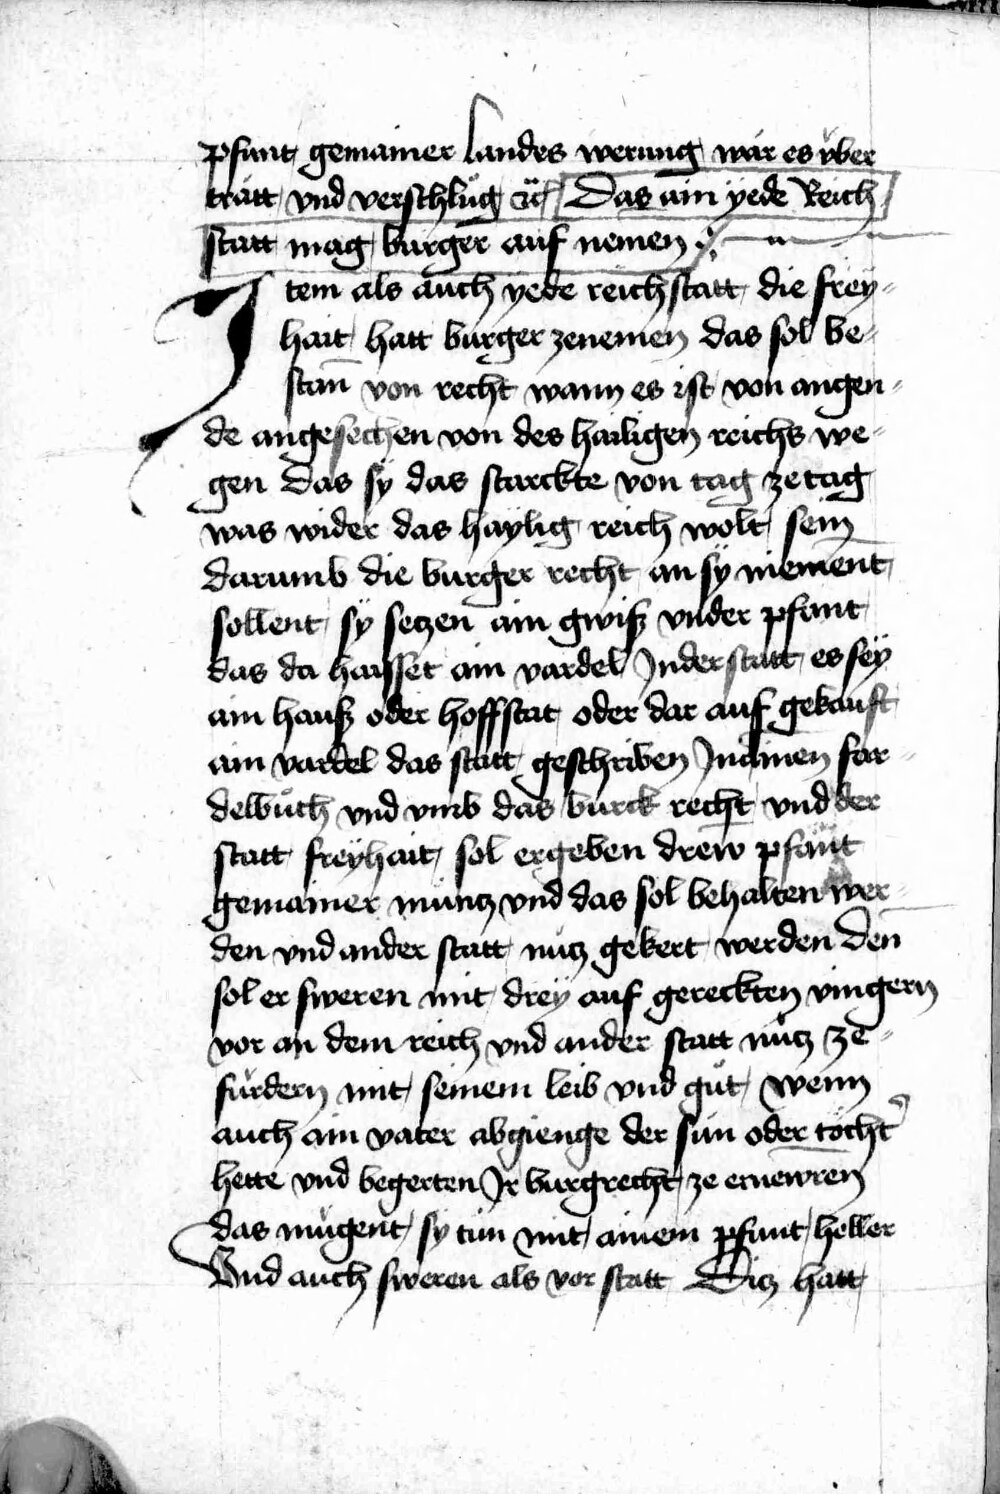 pfunt gemainer landes werung wär es v̈ber
trätt vnd verschlůg ꝛc̈ Das ain yede Reich
statt mag burger auf nemen
Item als auch yede reichstatt die frey-
hait hatt burger zenemen das sol be-
stan̄ von recht wann es ist von angen-
de angesechen von des hailigen reichs we-
gen das sÿ das starckte von tag ze tag
was wider das haylig reich wolt sein
darumb die burger recht an sÿ niement
sollent sÿ setzen ain gwiß vnder pfant
das da haisset ain vardel Jn der statt es seÿ
ain hauß oder hoffstat oder dar auf gekauft
ain vardel das statt geschriben Jn ainen far-
delbůch vnd vmb das burck recht vnd der
statt freyhait sol er geben drew pfunt
gemainer müntz vnd das sol behalten wer-
den vnd an der statt nutz gekert werden Den̄
sol er sweren mit dreÿ auf gereckten vingern
vor an dem reich vnd an der statt nůtz ze-
fürdern mit seinem leib vnd gůt Wenn
auch ain vater abgienge der sün oder töcht᾿
hette vnd begerten Jr burgrecht ze ernewren
das mügent sÿ tün mit ainem pfunt heller
Vnd auch sweren als vor statt Ditz hatt